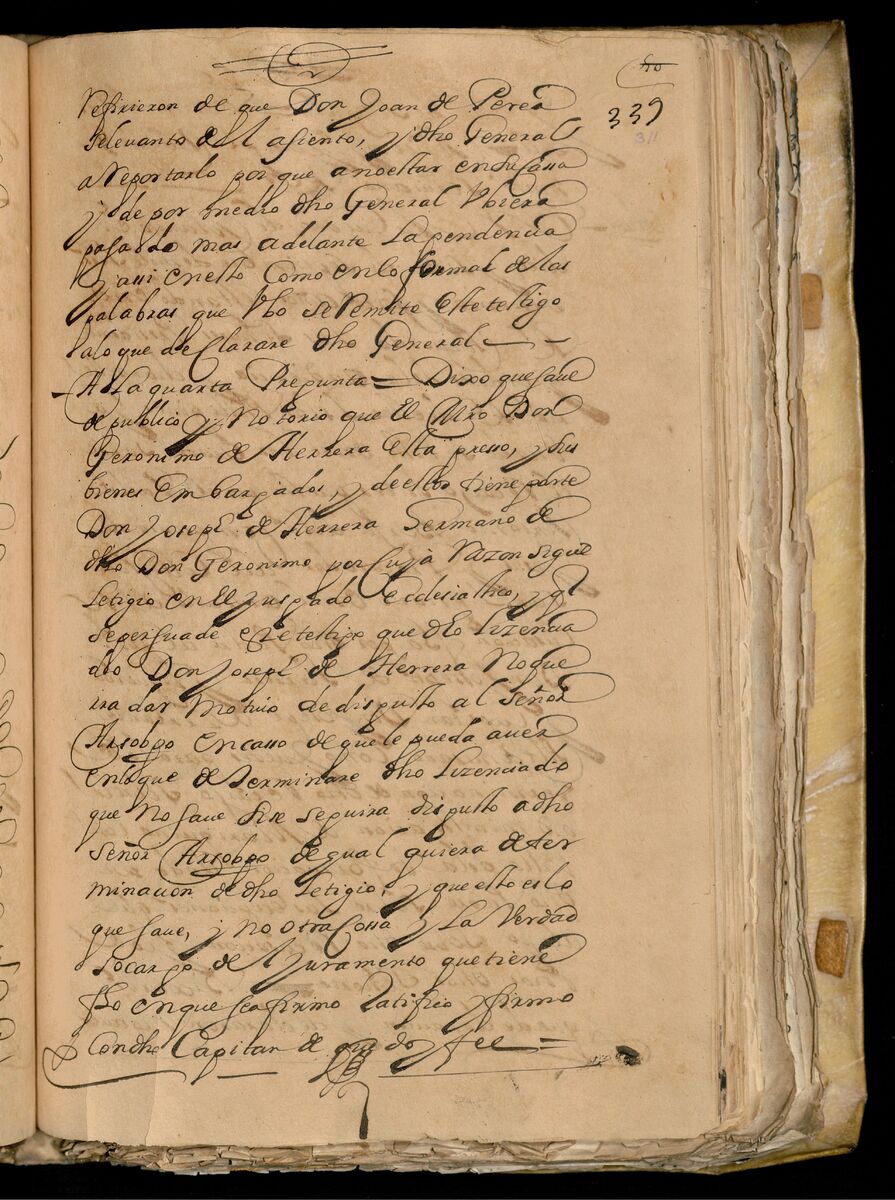 339
311
refirieron de que Don Joan de Perea
se levanto del asiento, y dho General
a reportarlo por que a no estar en su Cassa
y de por medio dho General Vbiera
pasado mas adelante La pendencia
y assi en esto Como en lo formal de las
palabras que Vbo se Remite este testigo
a lo que de Clarare dho General
A La quarta Pregunta = Dixo que save
de publico y Notorio que El Mro Don
Geronimo de Herrera Esta presso, y sus
bienes Embargados, y de ellos tiene parte
Don Joseph de Herrera hermano de
dho Don Geronimo por Cuya Razon sigue
letigio en El Jusgado Ecclesiastico, y q̃l
se persuade este testigo que dho Lizencia
do Don Joseph de Herrera No que
rra dar Motivo de disgusto al Señor
Arsobpo en casso de que le pueda aver
en lo que determinare dho Lizenciado
que No save si se seguira disgusto a dho
Señor Arsobpo de qual quiera deter
minacion de dho letigio, y que esto es lo
que save, y no otra Cossa y La Verdad
so cargo del Juramento que tiene
fho en que se afirmo Ratifico y firmo
Con dho Capitan de que doy fee =